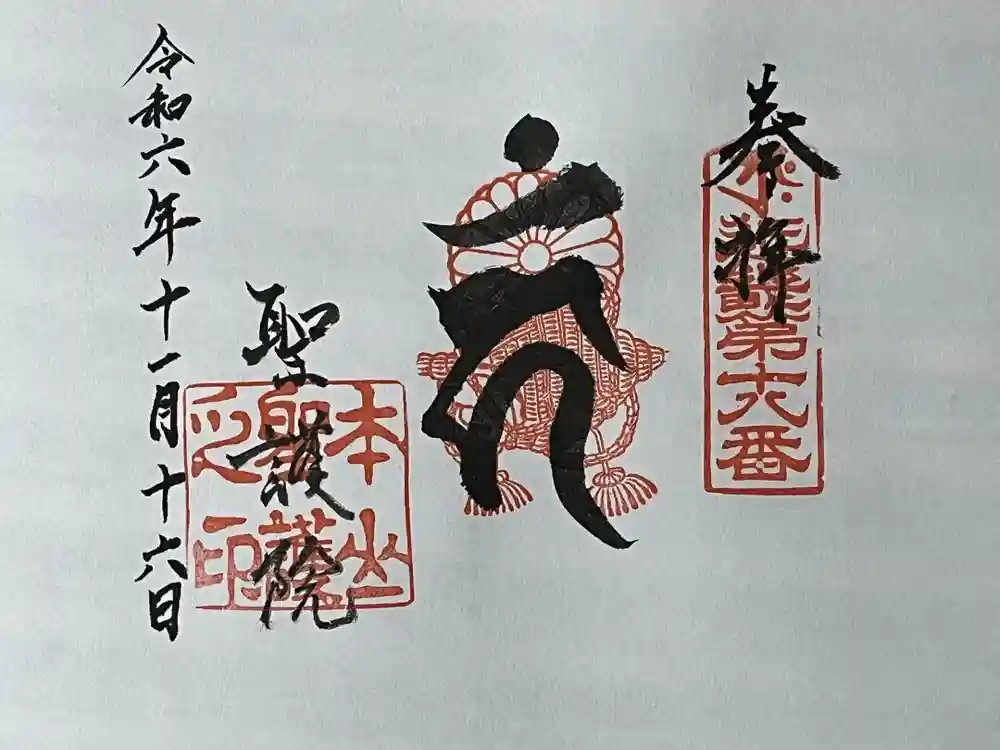 奉拝
第六番
聖護院
本山
聖護
之印
令和六年十一月十六日